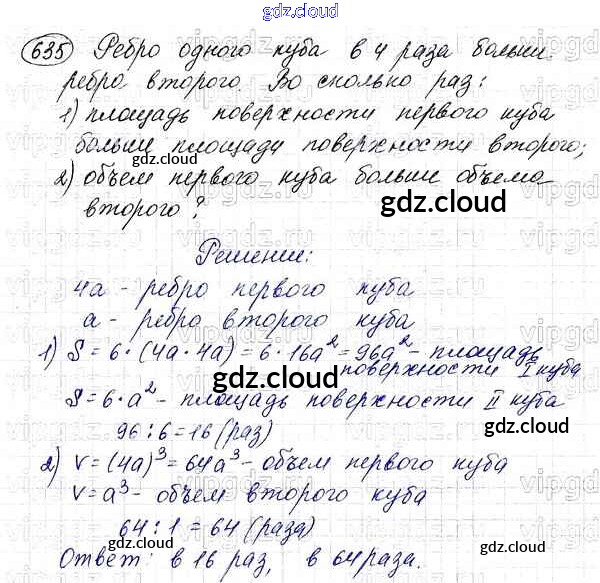 gdz.cloud
635 Ребро одного куба в 4 раза больше
ребра второго. Во сколько раз:
1) площадь поверхности первого куба
больше площади поверхности второго;
gdz.cloud
2) объем первого куба больше объема
второго?
gdz.cloud
Решение:
gdz.cloud
4a - ребро первого куба
a - ребро второго куба
1) S = 6·(4a·4a) = 6·16a² = 96a² - площадь
поверхности I куба
gdz.cloud
S = 6·a² - площадь поверхности II куба
96 : 6 = 16 (раз)
2) V = (4a)³ = 64a³ - объем первого куба
V = a³ - объем второго куба
64 : 1 = 64 (раза)
gdz.cloud
Ответ: в 16 раз, в 64 раза.
gdz.cloud